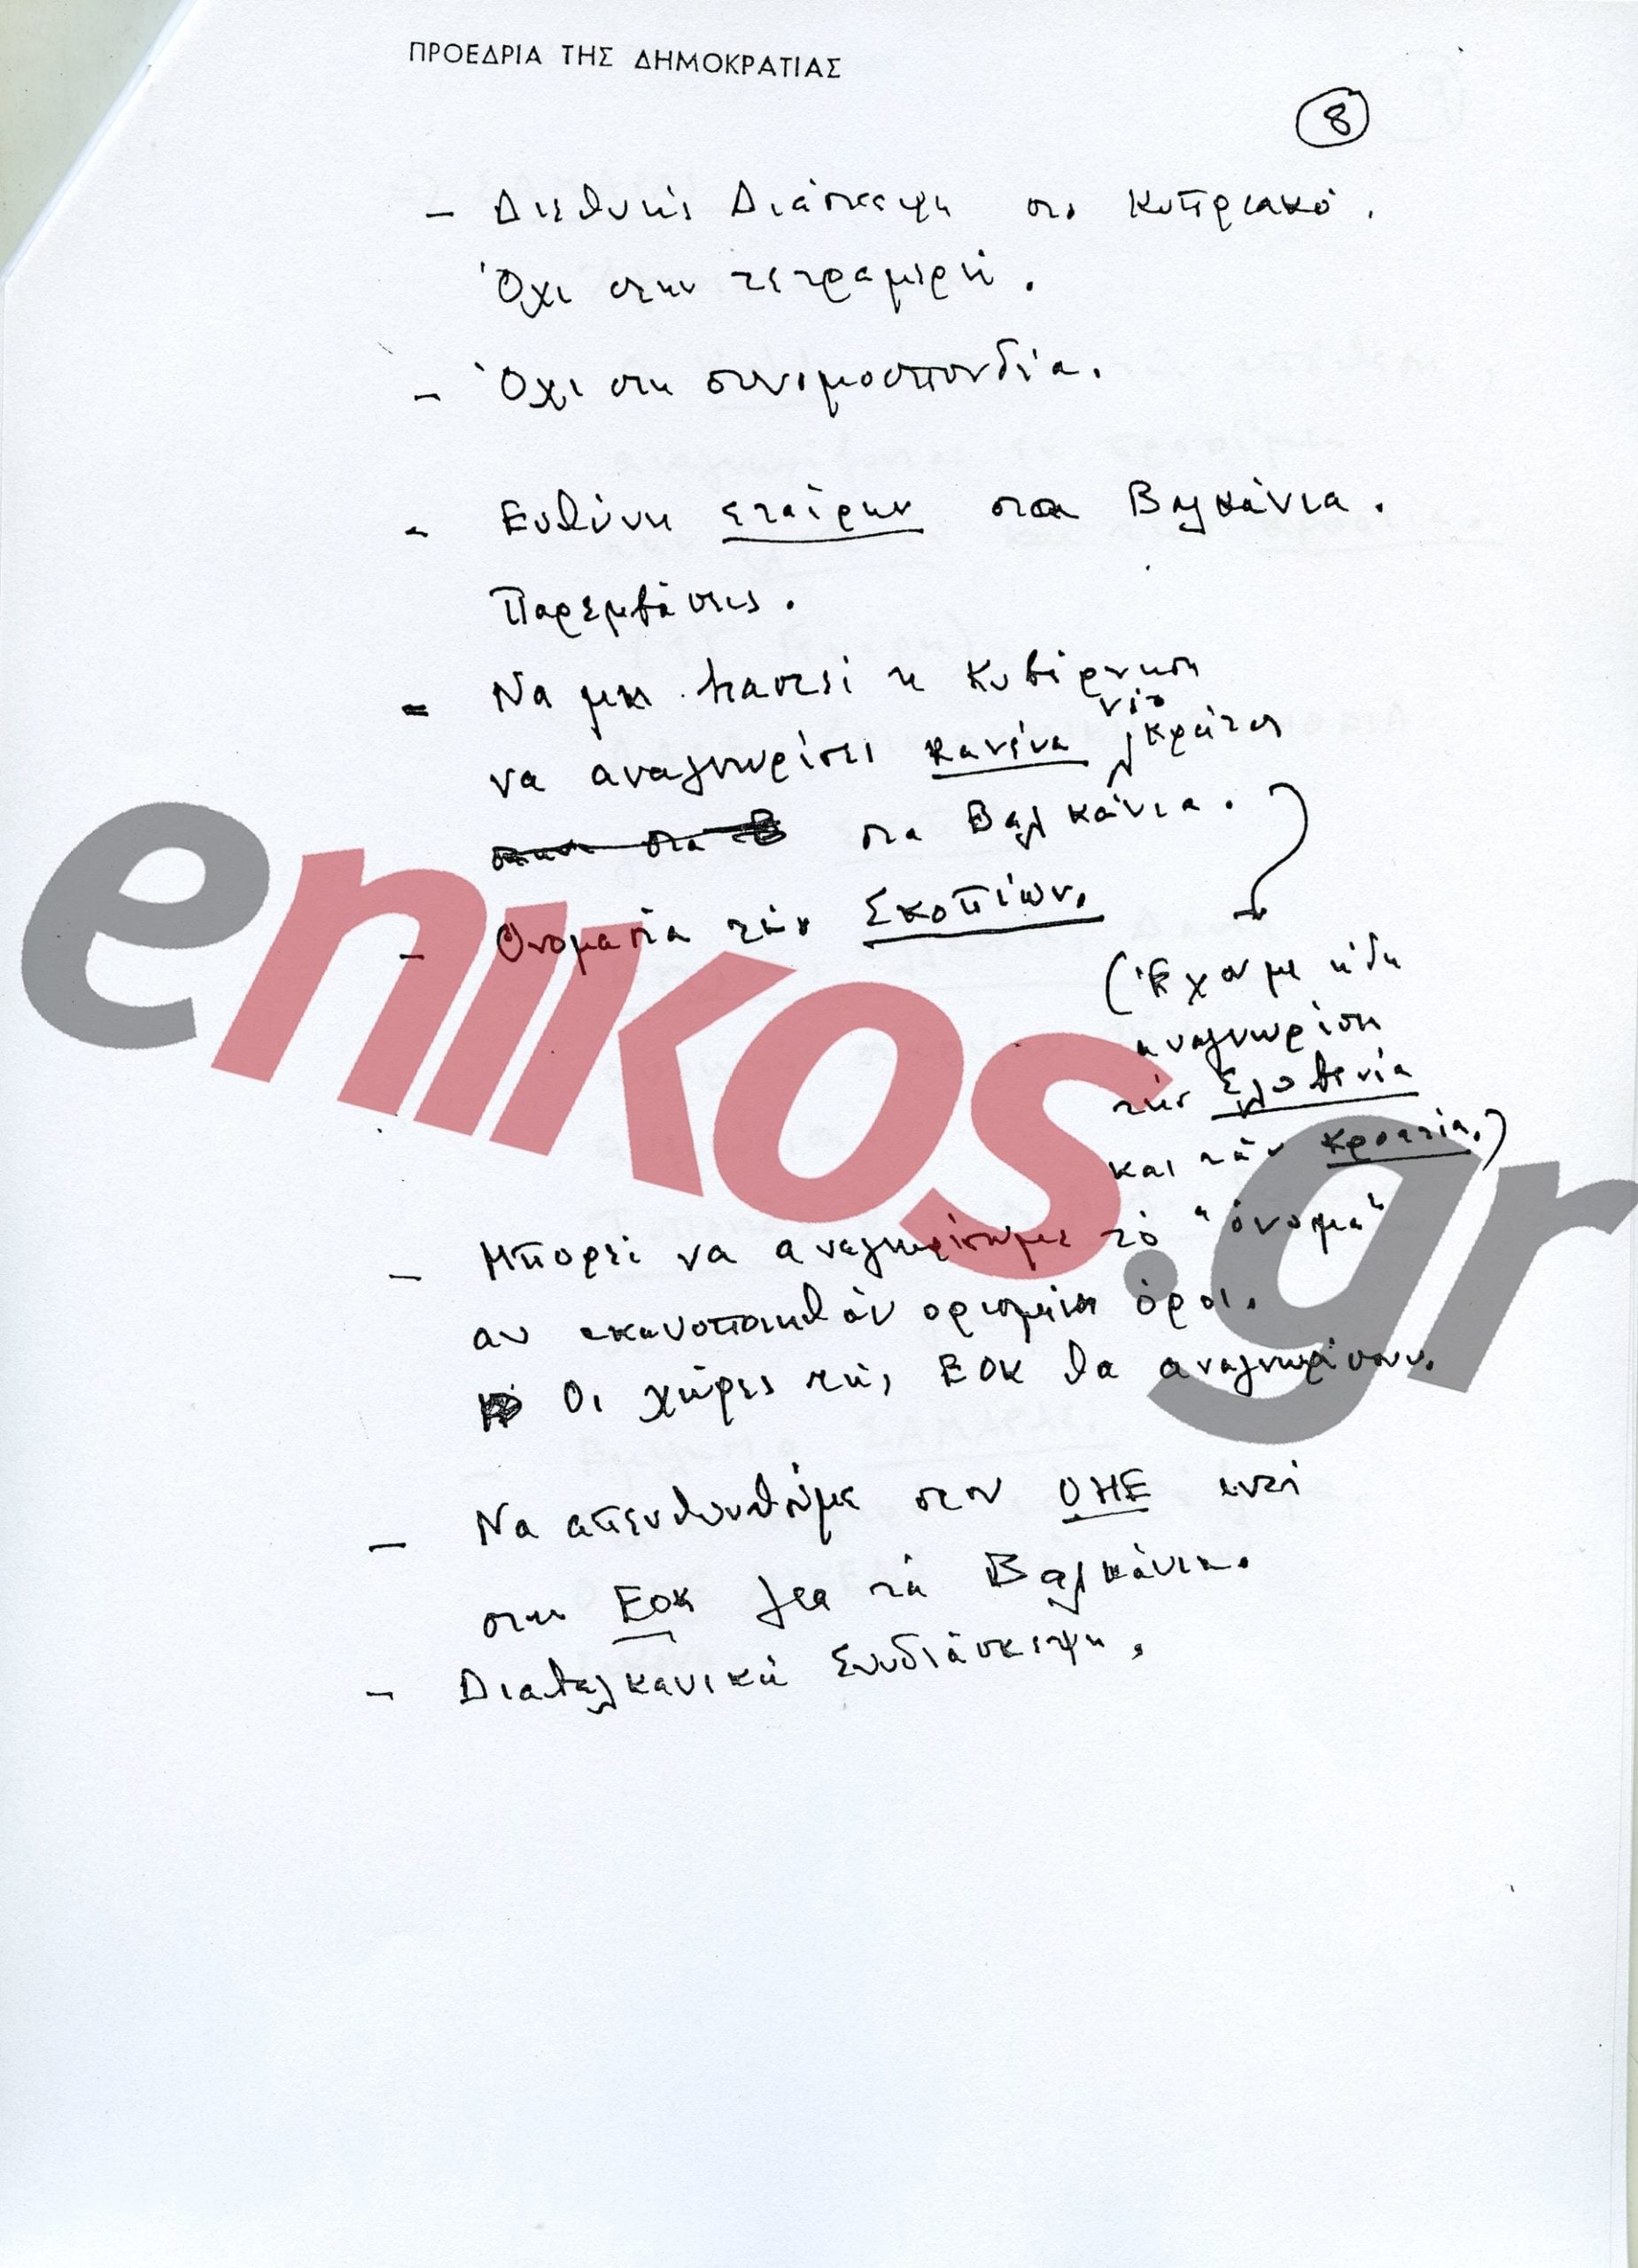 ΠΡΟΕΔΡΙΑ ΤΗΣ ΔΗΜΟΚΡΑΤΙΑΣ
8
- Διεθνής Διάσκεψη στο Κυπριακό.
Όχι στην τετραμερή.
- Όχι στη συνομοσπονδία.
- Ευθύνη εταίρων στα Βαλκάνια.
Παρεμβάσεις.
- Να μη βιαστεί η Κυβέρνηση
να αναγνωρίσει κανένα νέο κράτος
στα Βαλκάνια.
- Ονομασία τών Σκοπίων.
(Έχουμε ήδη
αναγνωρίση
τήν Σλοβενία
και τήν Κροατία.)
- Μπορεί να αναγνωρίσωμε τό "όνομα"
αν ικανοποιηθούν ορισμένοι όροι.
Οι χώρες τής ΕΟΚ θα αναγνωρίσουν.
- Να απευθυνθούμε στον ΟΗΕ αντί
στην ΕΟΚ για τά Βαλκάνια.
- Διαβαλκανική Συνδιάσκεψη.
enikos.gr